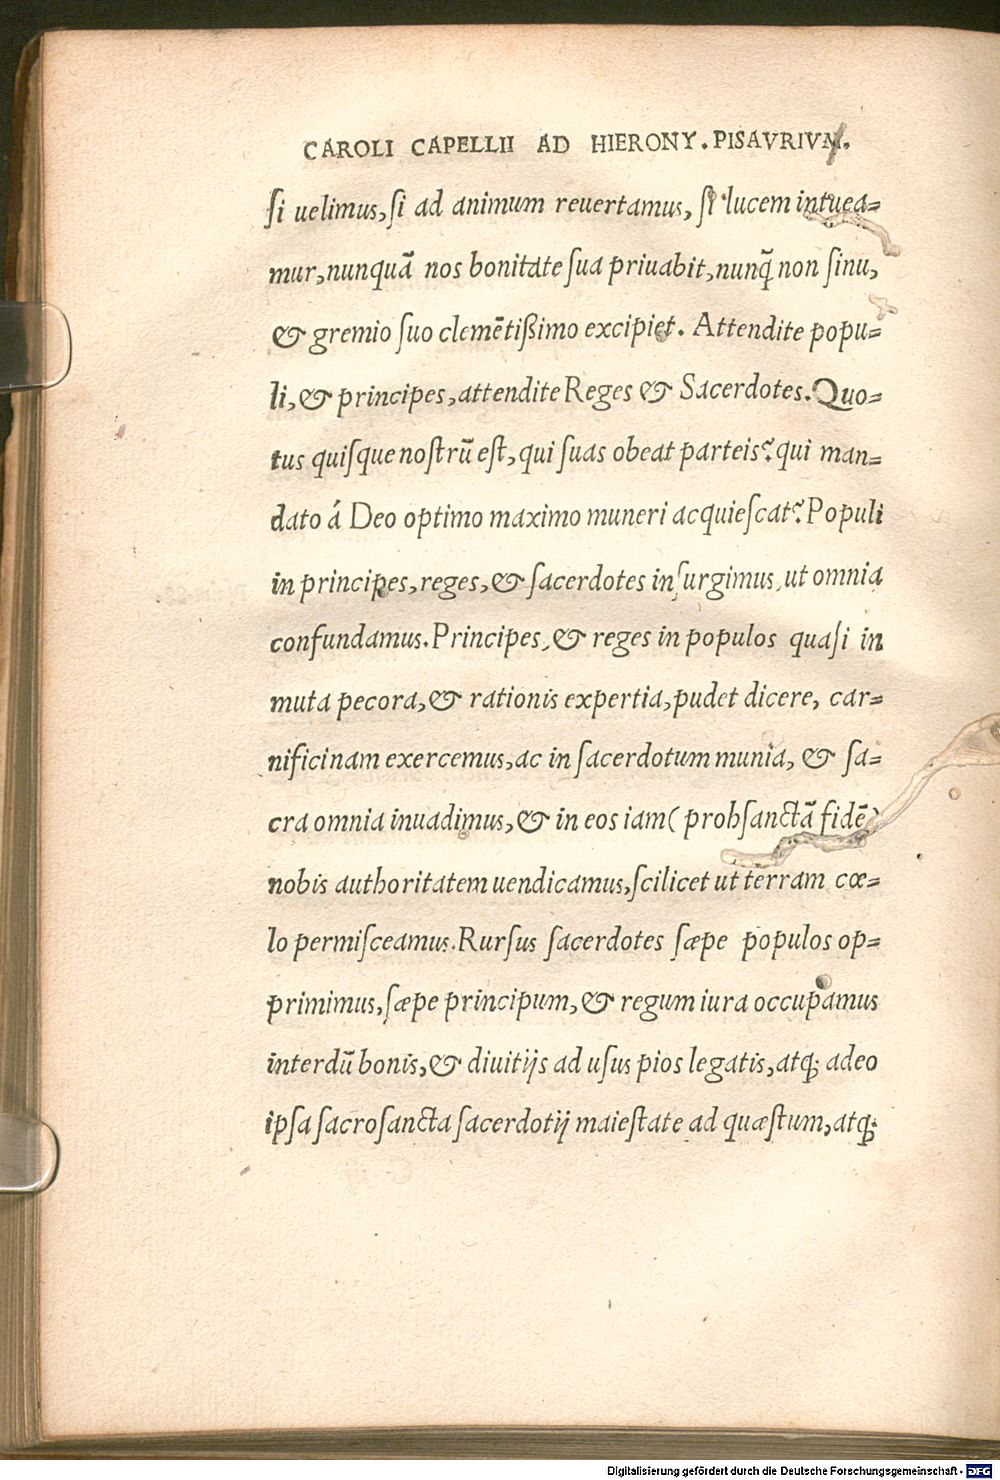 CAROLI CAPELLII AD HIERONY. PISAVRIVM.
ſi uelimus, ſi ad animum reuertamus, ſi lucem intuea=
mur, nunquā nos bonitate ſua priuabit, nunq̄ non ſinu,
& gremio ſuo clemētißimo excipiet. Attendite popu=
li, & principes, attendite Reges & Sacerdotes. Quo=
tus quiſque noſtrū eſt, qui ſuas obeat parteis? qui man=
dato á Deo optimo maximo muneri acquieſcat? Populi
in principes, reges, & ſacerdotes inſurgimus, ut omnia
confundamus. Principes, & reges in populos quaſi in
muta pecora, & rationis expertia, pudet dicere, car=
nificinam exercemus, ac in ſacerdotum munia, & ſa=
cra omnia inuadimus, & in eos iam ( proh ſanctā fidē)
nobis authoritatem uendicamus, ſcilicet ut terram cœ=
lo permiſceamus. Rurſus ſacerdotes ſæpe populos op=
primimus, ſæpe principum, & regum iura occupamus
interdū bonis, & diuitijs ad uſus pios legatis, atq; adeo
ipſa ſacroſancta ſacerdotij maieſtate ad quæſtum, atq;
Digitalisierung gefördert durch die Deutsche Forschungsgemeinschaft - DFG